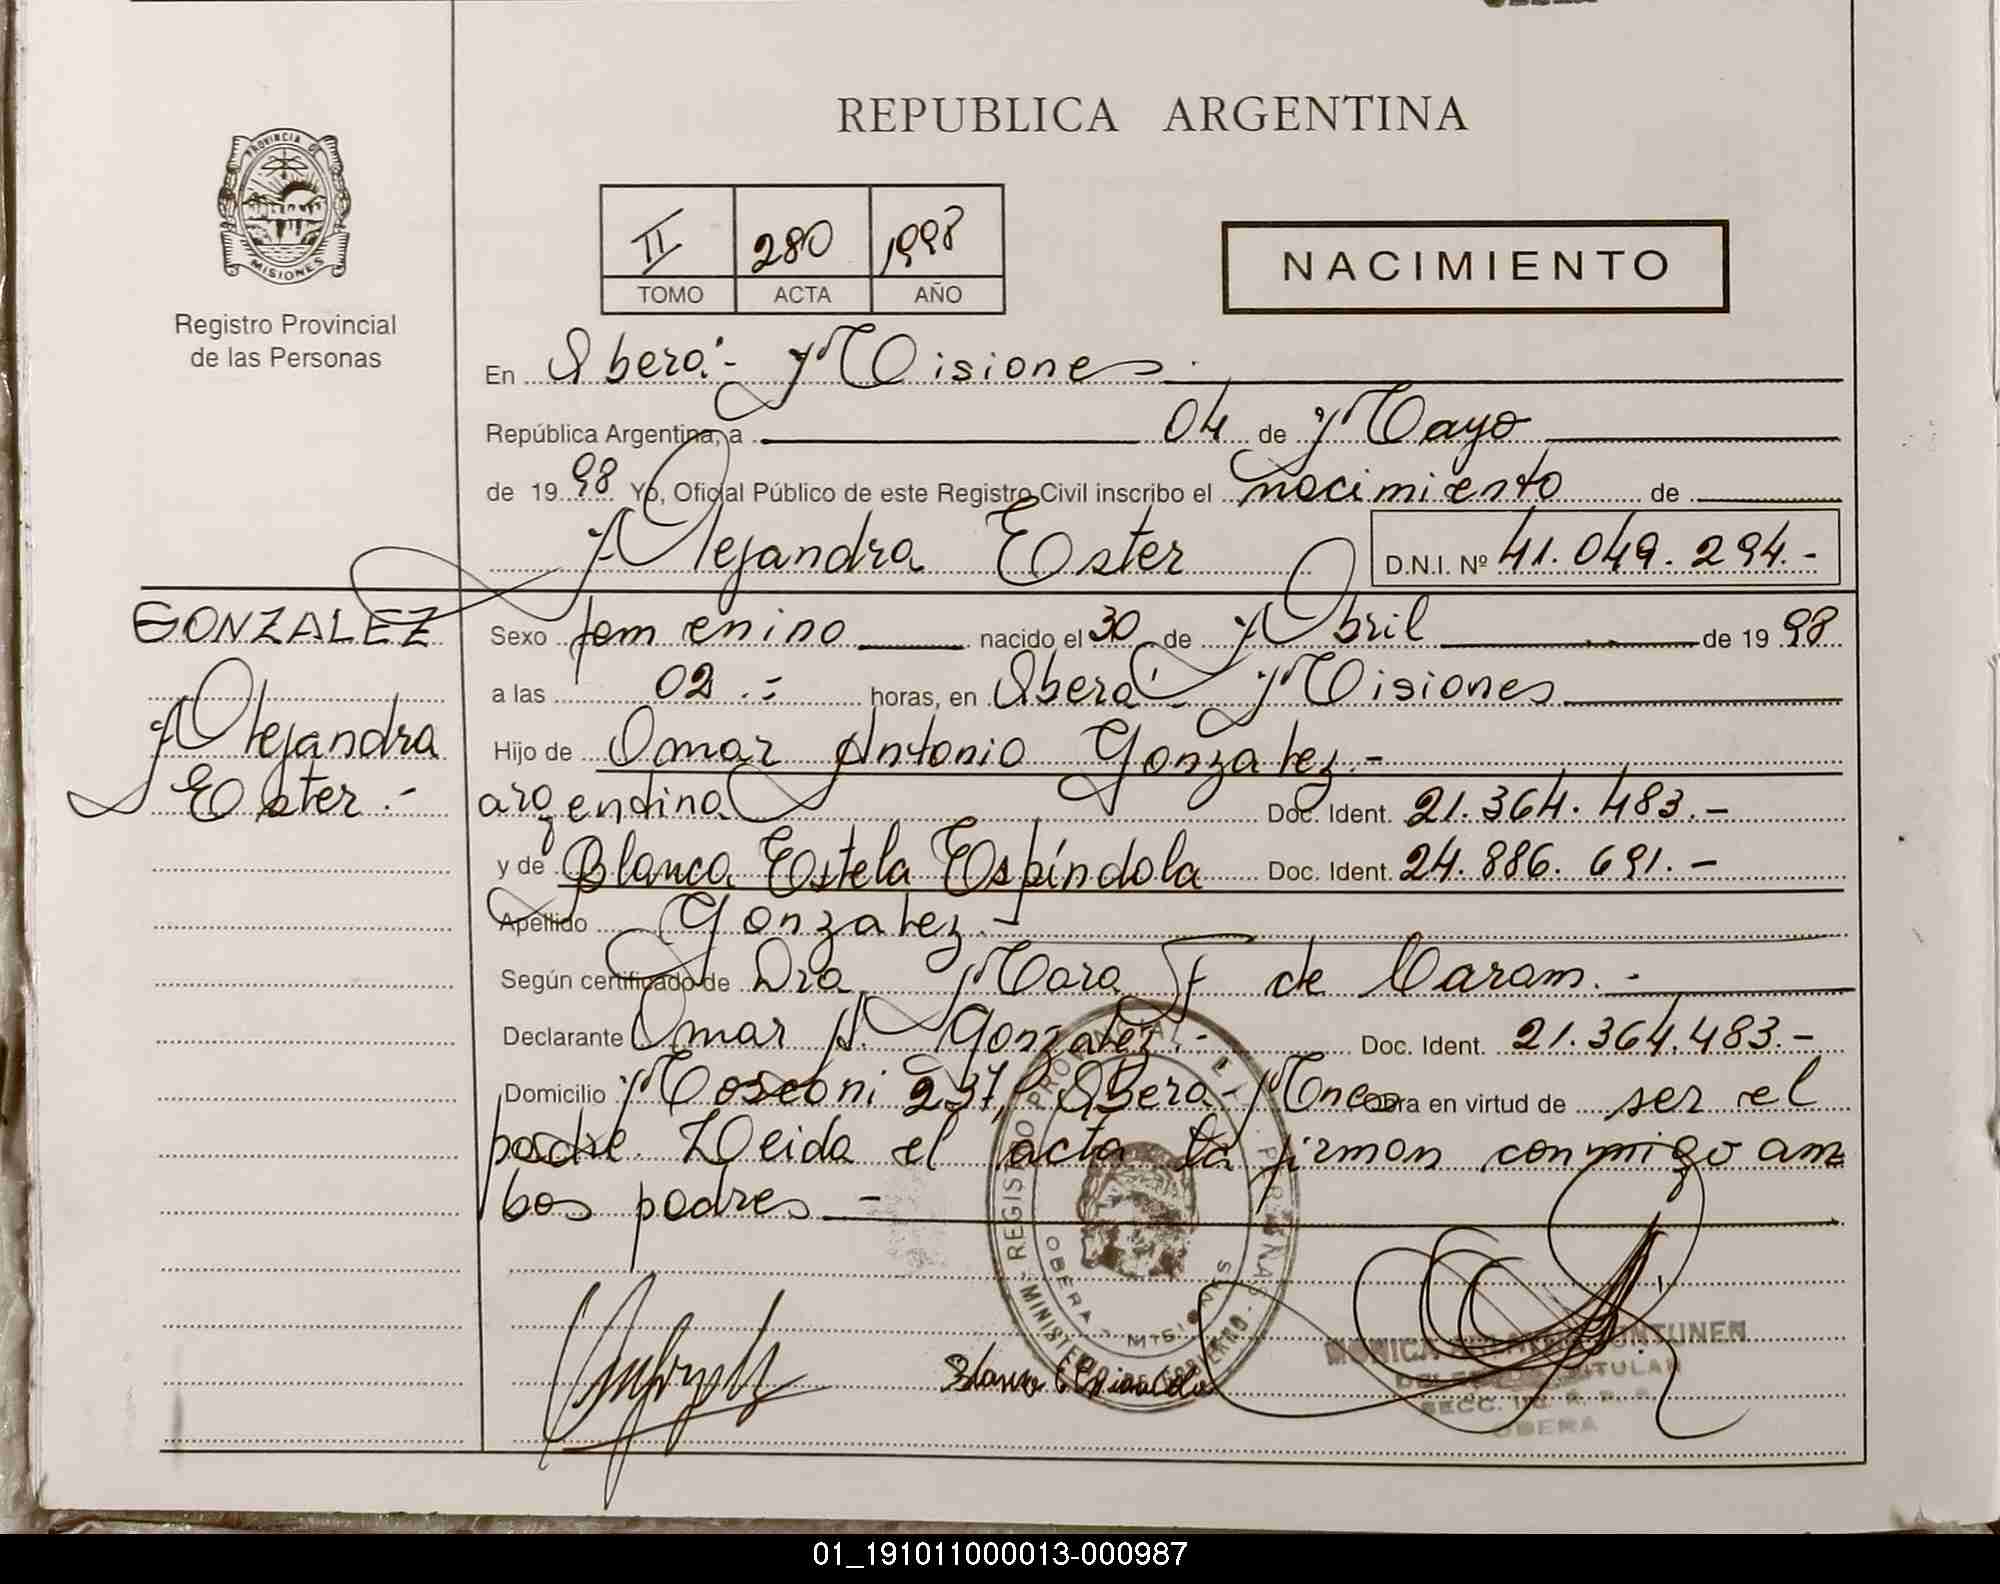 REPUBLICA ARGENTINA
PROVINCIA DE
MISIONES
Registro Provincial
de las Personas
II 280 1998
TOMO ACTA AÑO
NACIMIENTO
En Oberá.- Misiones.
República Argentina, a 04 de Mayo
de 1998 Yo, Oficial Público de este Registro Civil inscribo el nacimiento de
Alejandra Ester D.N.I. Nº 41.049.294.-
GONZALEZ
Alejandra
Ester.-
Sexo femenino nacido el 30 de Abril de 1998
a las 02.= horas, en Oberá - Misiones
Hijo de Omar Antonio Gonzalez.-
argentina Doc. Ident. 21.364.483.-
y de Blanca Estela Espíndola Doc. Ident. 24.886.691.-
Apellido Gonzalez.-
Según certificado de Dra Mara F de Caram.-
Declarante Omar A. Gonzalez.- Doc. Ident. 21.364.483.-
Domicilio Mosconi 237, Oberá - Mnes Obra en virtud de ser el
padre. Leida el acta la firman conmigo am
bos padres.-
REGISTRO PROVINCIAL DE
MINISTERIO DE GOBIERNO
OBERA - MISIONES
Blanca Espindola
MONICA
TITULAR
SECC.
OBERA
01_191011000013-000987